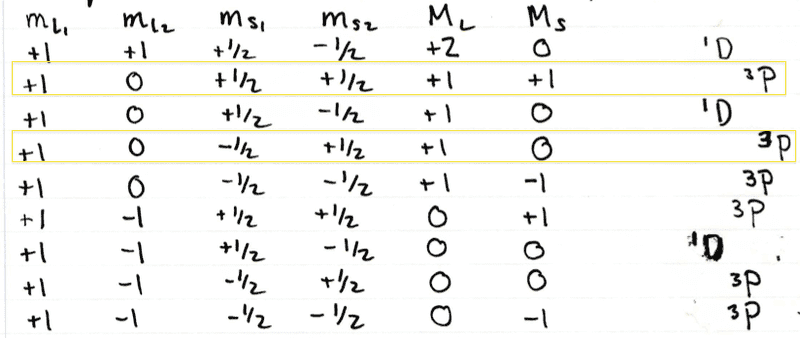 mL1 mL2 mS1 mS2 ML MS
+1 +1 +1/2 -1/2 +2 0 ¹D
+1 0 +1/2 +1/2 +1 +1 ³P
+1 0 +1/2 -1/2 +1 0 ¹D
+1 0 -1/2 +1/2 +1 0 ³P
+1 0 -1/2 -1/2 +1 -1 ³P
+1 -1 +1/2 +1/2 0 +1 ³P
+1 -1 +1/2 -1/2 0 0 ¹D
+1 -1 -1/2 +1/2 0 0 ³P
+1 -1 -1/2 -1/2 0 -1 ³P